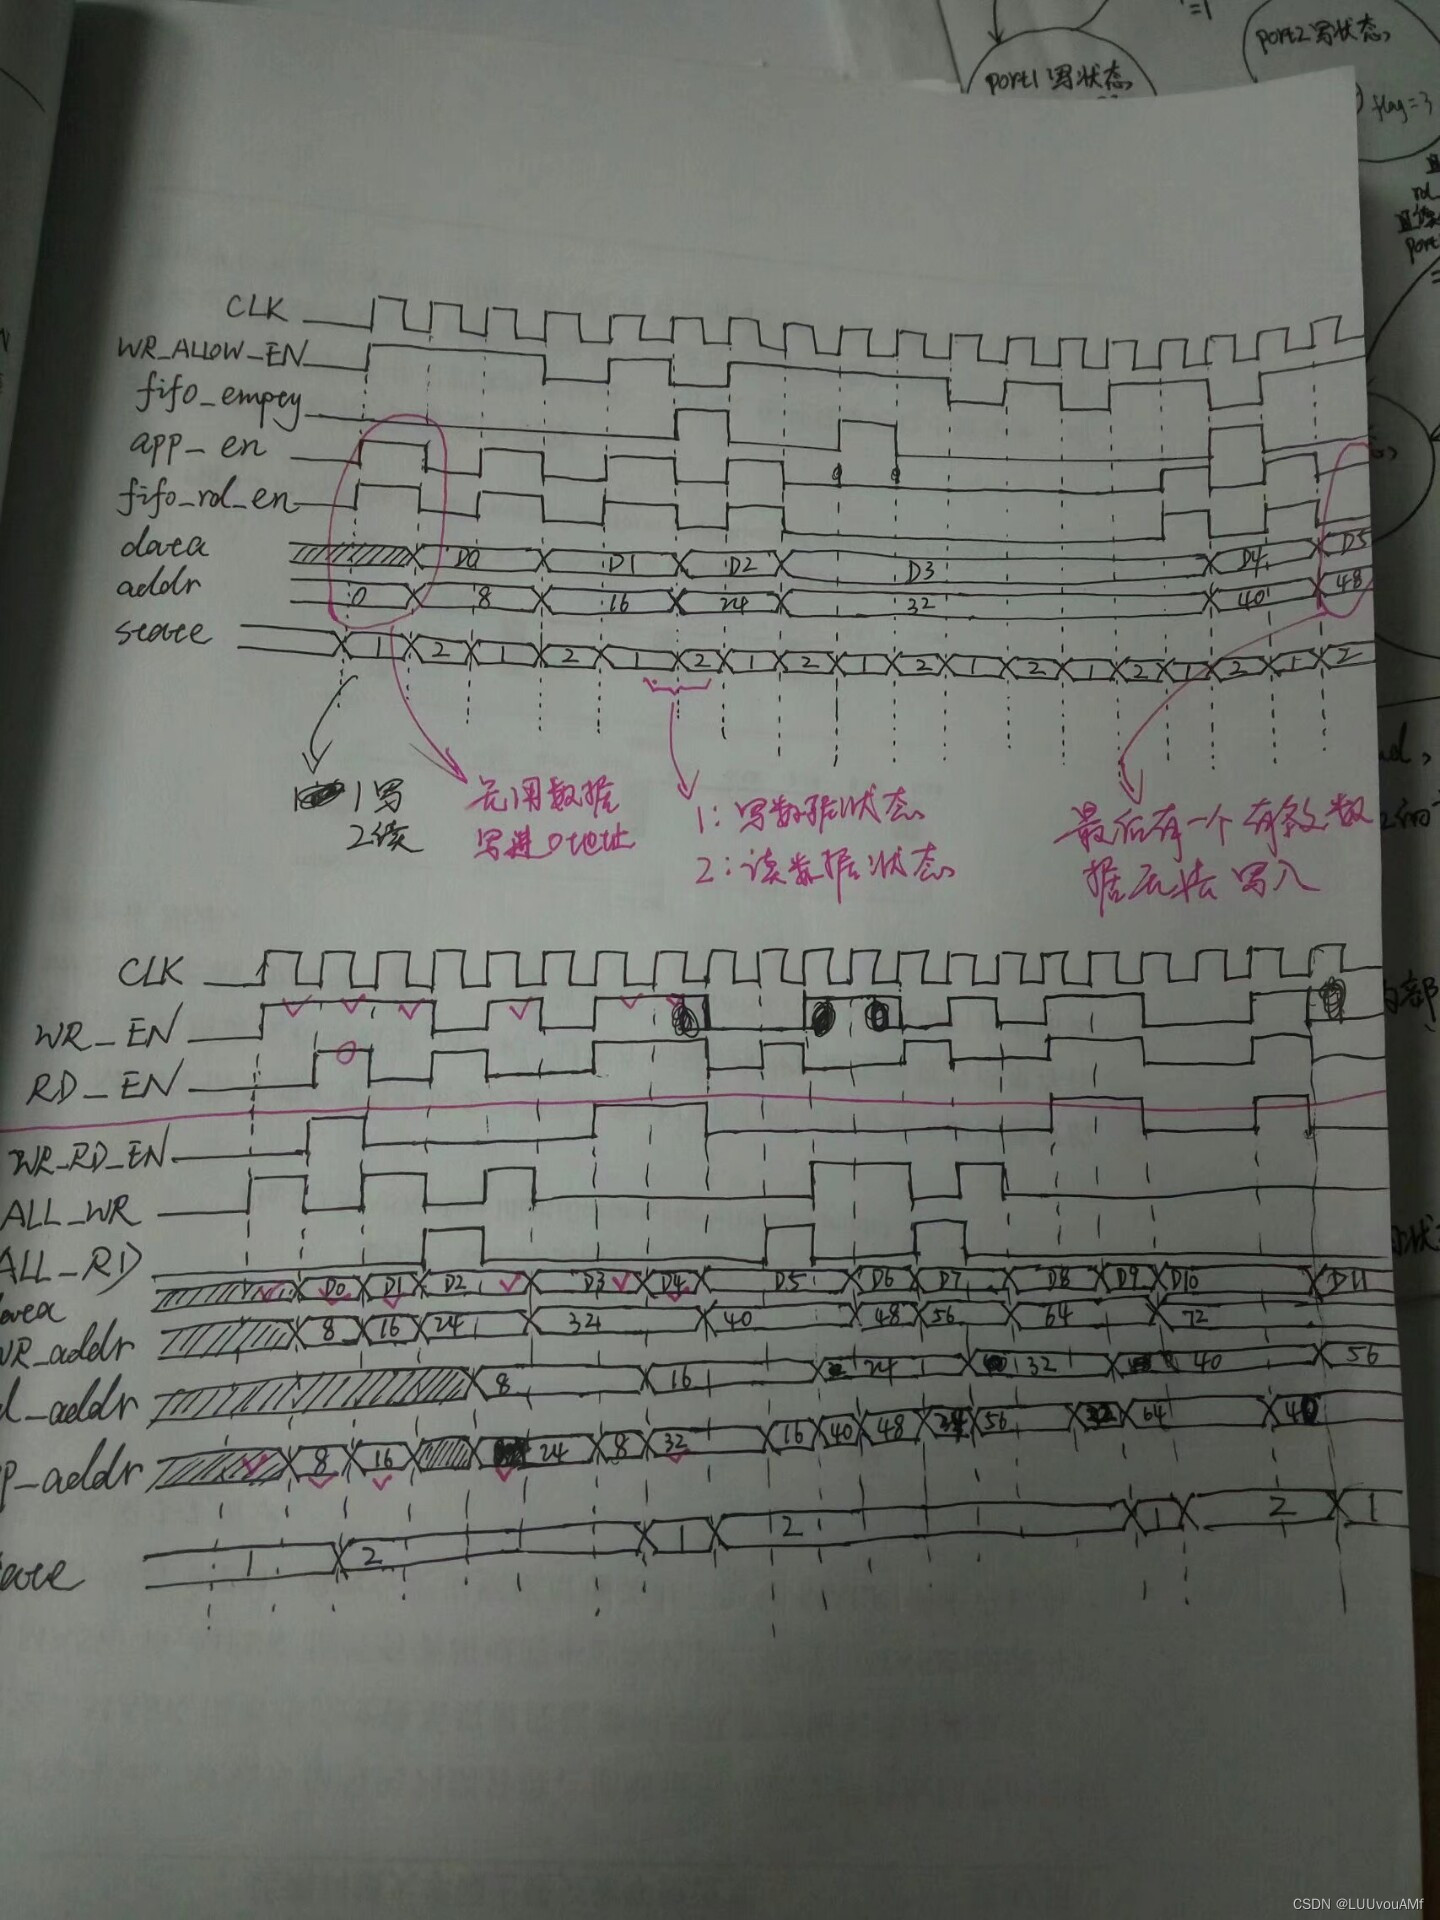 =1
port1写状态
port2写状态
flag=3
CLK
WR_ALLOW_EN
fifo_empty
app_en
fifo_rd_en
data D0 D1 D2 D3 D4 D5
addr 0 8 16 24 32 40 48
state 1 2 1 2 1 2 1 2 1 2 1 2 1 2 1 2 1 2
1写
2读
无用数据
写进0地址
1:写数据状态
2:读数据状态
最后有一个有效数
据无法写入
CLK
WR_EN
RD_EN
WR_RD_EN
ALL_WR
ALL_RD
data D0 D1 D2 D3 D4 D5 D6 D7 D8 D9 D10 D11
WR_addr 8 16 24 32 40 48 56 64 72
d_addr 8 16 24 32 40 56
p_addr 8 16 24 8 32 16 40 48 24 56 32 64 40
tate 1 2 1 2 1 2 1
CSDN @LUUvouAMf